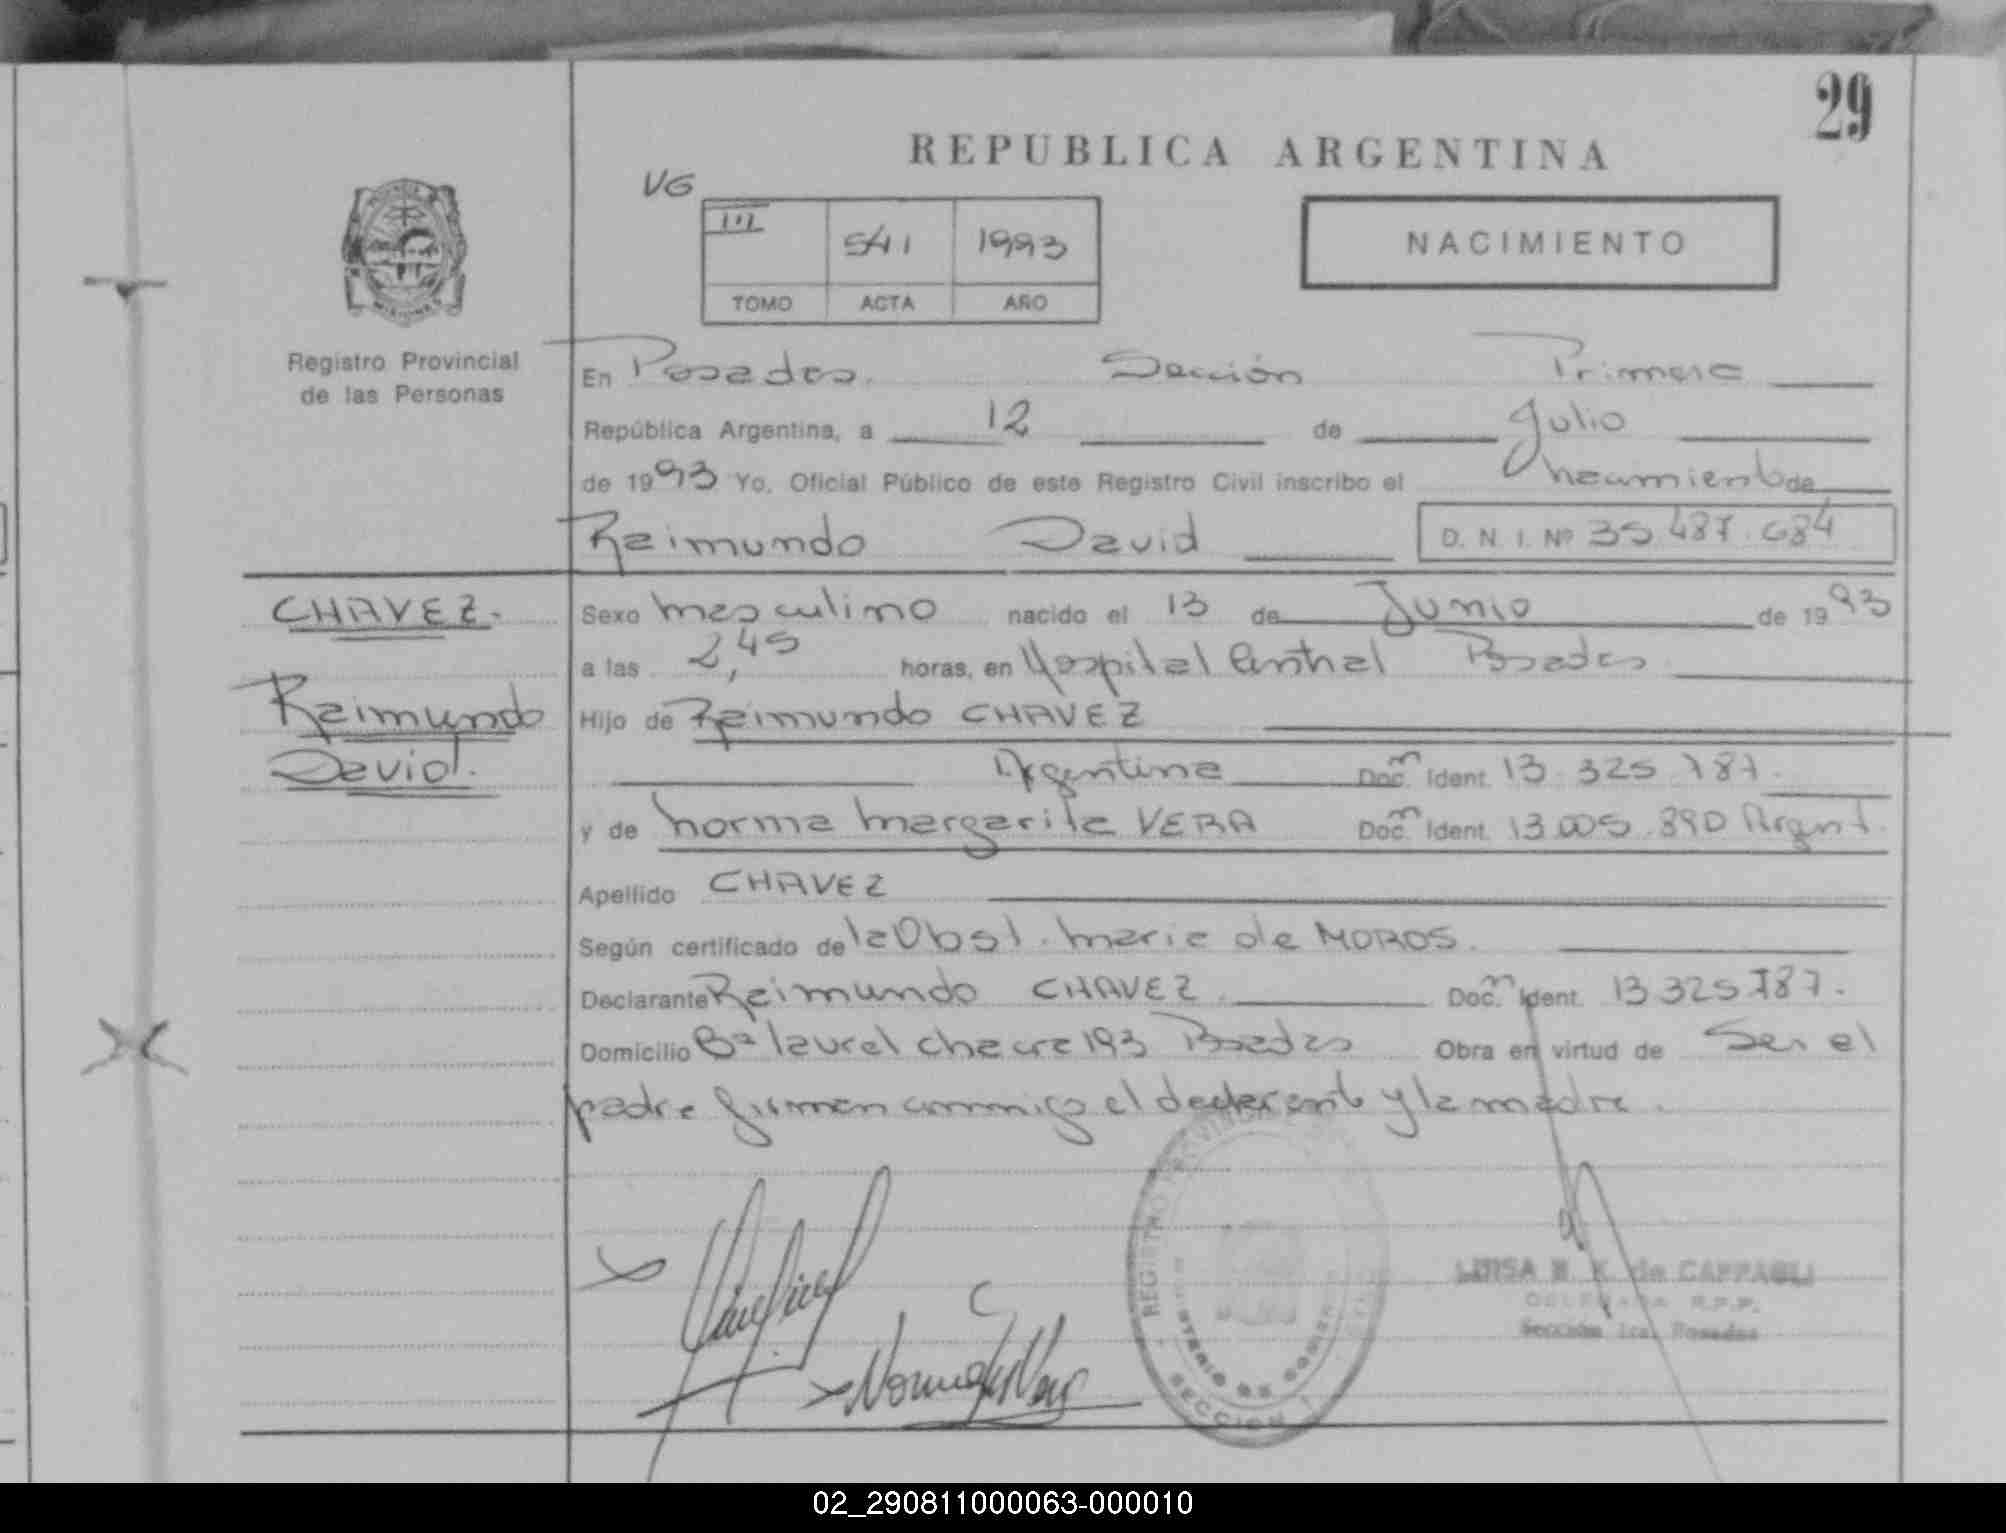 29
REPUBLICA ARGENTINA
VG
III 541 1993
TOMO ACTA AÑO
NACIMIENTO
MISIONES
Registro Provincial
de las Personas
En Posadas. Sección Primera
República Argentina, a 12 de Julio
de 1993 Yo, Oficial Público de este Registro Civil inscribo el nacimiento de
Raimundo David D. N. I. Nº 35.487.684
CHAVEZ.
Raimundo
David.
Sexo masculino nacido el 13 de Junio de 1993
a las 2,45 horas, en Hospital Central Posadas
Hijo de Raimundo CHAVEZ
Argentina Doc. Ident. 13.325.787.
y de Norma Margarita VERA Doc. Ident. 13.005.890 Argent.
Apellido CHAVEZ
Según certificado de la Obst. Maria de MOROS.
Declarante Raimundo CHAVEZ. Doc. Ident. 13325787.
Domicilio Bº laurel chacra 193 Posadas Obra en virtud de Ser el
padre firman conmigo el declarante y la madre.
REGISTRO PROVINCIAL
SECCION
LUISA de CAPPAGLI
DELEGADA R.P.P.
Sección 1ra. Posadas
02_290811000063-000010